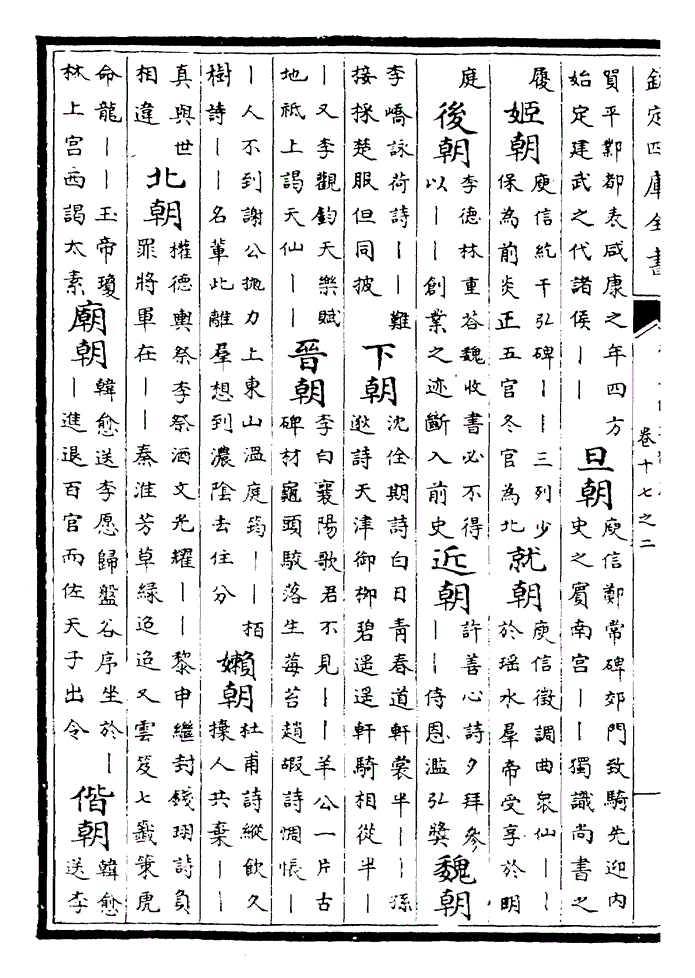 欽定四庫全書
卷十七之二
賀平鄴都表咸康之年四方
始定建武之代諸侯丨丨
旦朝
庾信鄭常碑郊門致騎先迎内
史之賓南宮丨丨獨識尚書之
履
姬朝
庾信紇干弘碑丨丨三列少
保為前炎正五官冬官為北
就朝
庾信徵調曲衆仙丨丨
於瑶水羣帝受享於明
庭
後朝
李德林重荅魏收書必不得
以丨丨創業之迹斷入前史
近朝
許善心詩夕拜參
丨丨侍恩濫弘奬
魏朝
李嶠詠荷詩丨丨難
接採楚服但同披
下朝
沈佺期詩白日青春道軒裳半丨丨孫
逖詩天津御栁碧遥遥軒騎相從半丨
丨又李觀鈞天樂賦
地祗上謁天仙丨丨
晉朝
李白襄陽歌君不見丨丨羊公一片古
碑材龜頭駮落生莓苔趙嘏詩惆悵丨
丨人不到謝公抛力上東山温庭筠丨丨栢
樹詩丨丨名輩此離羣想到濃陰去住分
嬾朝
杜甫詩縱飲久
人共棄丨丨
真與世
相違
北朝
權德輿祭李祭酒文光耀丨丨黎申繼封錢珝詩負
罪將軍在丨丨秦淮芳草緑迢迢又雲笈七籖策虎
命龍丨丨玉帝瓊
林上宮西謁太素
廟朝
韓愈送李愿歸盤谷序坐於丨
丨進退百官而佐天子出令
偕朝
韓愈
送李